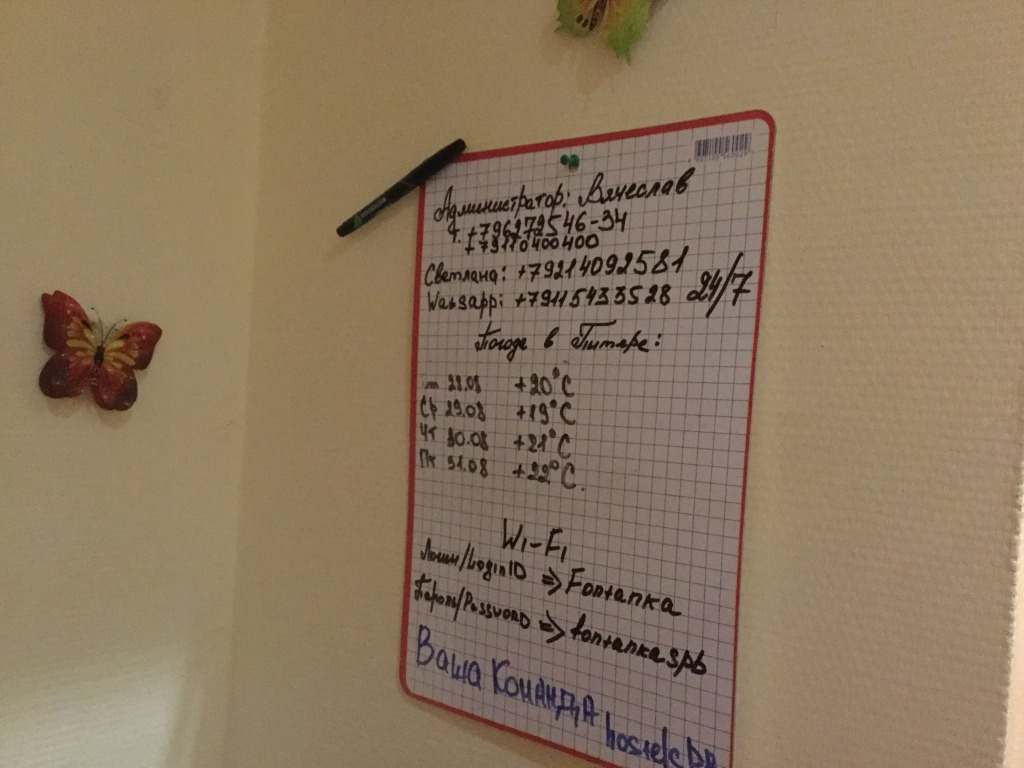 Администратор: Вячеслав
т. +796279546-34
+79110400400
Светлана: +79214092581
Watsapp: +79115433528 24/7
Погода в Питере:
вт 28.08 +20°C
Ср 29.08 +19°C
Чт 30.08 +21°C
Пт 31.08 +22°C.
Wi-Fi
Логин/Login ID => Fontanka
Пароль/Password => fontanka spb
Ваша Команда